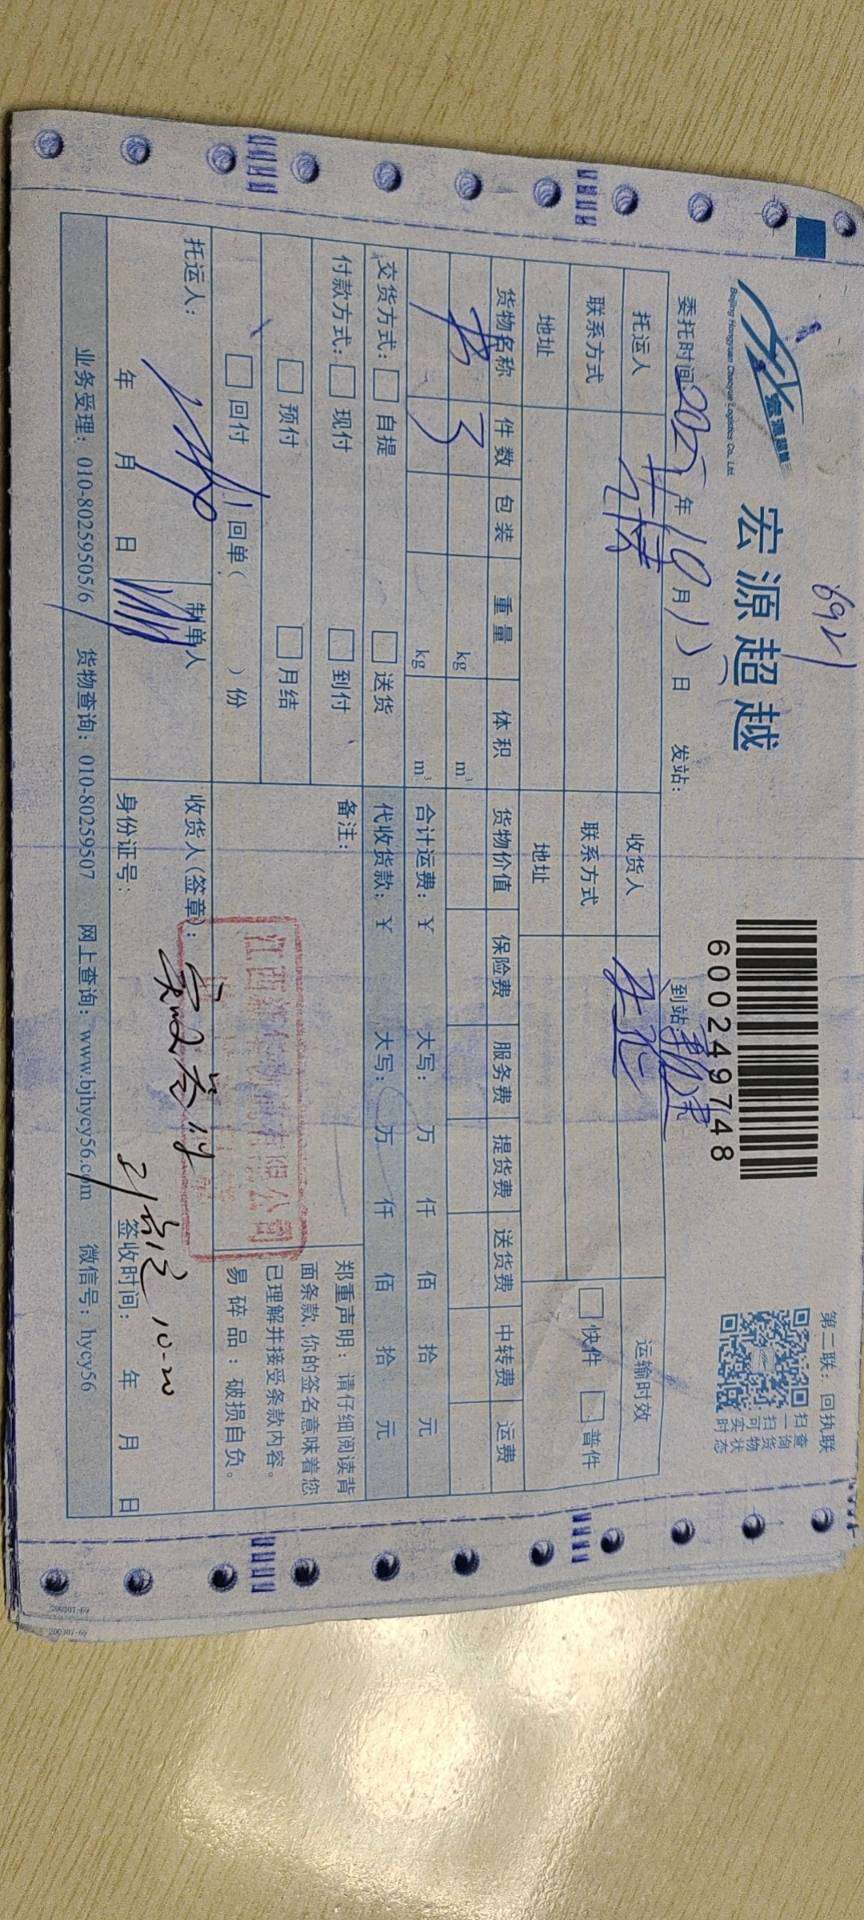 6921
第二联：回执联
宏源超越
Beijing Hongyuan Chaoyue Logistics Co., Ltd.
宏源超越
600249748
扫一扫可实时
查询货物状态
委托时间：2025年10月13日 发站： 到站
托运人 收货人 运输时效
联系方式 联系方式 快件 普件
地址 地址
货物名称 件数 包装 重量 体积 货物价值 保险费 服务费 提货费 送货费 中转费 运费
书 3 kg m³
kg m³ 合计运费：¥ 大写： 万 仟 佰 拾 元
交货方式： 自提 送货 代收货款：¥ 大写： 万 仟 佰 拾 元
付款方式： 现付 到付 备注：
预付 月结
回付 回单（ ）份
郑重声明：请仔细阅读背
面条款，你的签名意味着您
已理解并接受条款内容。
易碎品：破损自负。
托运人： 制单人 收货人(签章)：
年 月 日 身份证号： 签收时间： 年 月 日
10-20
业务受理：010-80259505/6 货物查询：010-80259507 网上查询：www.bjhycy56.com 微信号：hycy56